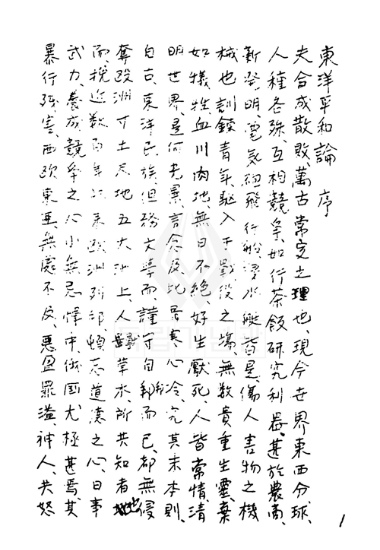 東洋平和論 序
夫合成散敗萬古常定之理也現今世界東西分球
人種各殊互相競爭如行茶飯研究利器甚於農商
新發明電氣砲飛行船浸水艇皆是傷人害物之機
械也訓鍊青年驅入于戰役之場無數貴重生靈棄
如犧牲血川肉地無日不絕好生厭死人皆常情清
明世界是何光景言念及此骨寒心冷究其末本則
自古東洋民族但務文學而謹守自邦而已都無侵
奪歐洲寸土尺地五大洲上人獸草木所共知者也
而挽近數百年以來歐洲列邦頓忘道德之心日事
武力養成競爭之心小無忌憚中俄国尤極甚焉其
暴行殘害西歐東亜無處不及惡盈罪溢神人共怒
1